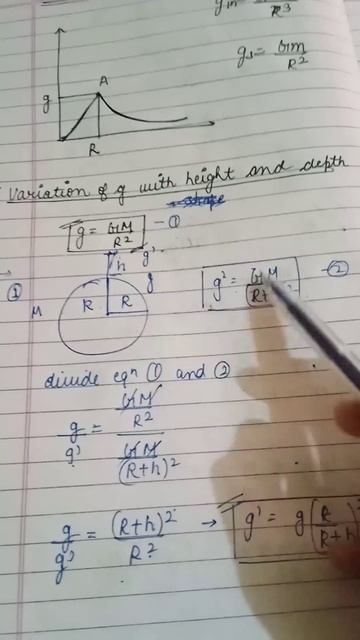 g_in = 
R³
g_s = GM
R²
g
A
R
Variation of g with height and depth
g = GM/R² - ①
h g'
g
①
M
R R
g' = GM
(R+ ²
- ②
divide eqⁿ ① and ②
g/g' = GM/R² / GM/(R+h)²
g/g' = (R+h)²/R² → g' = g(R/R+h)²